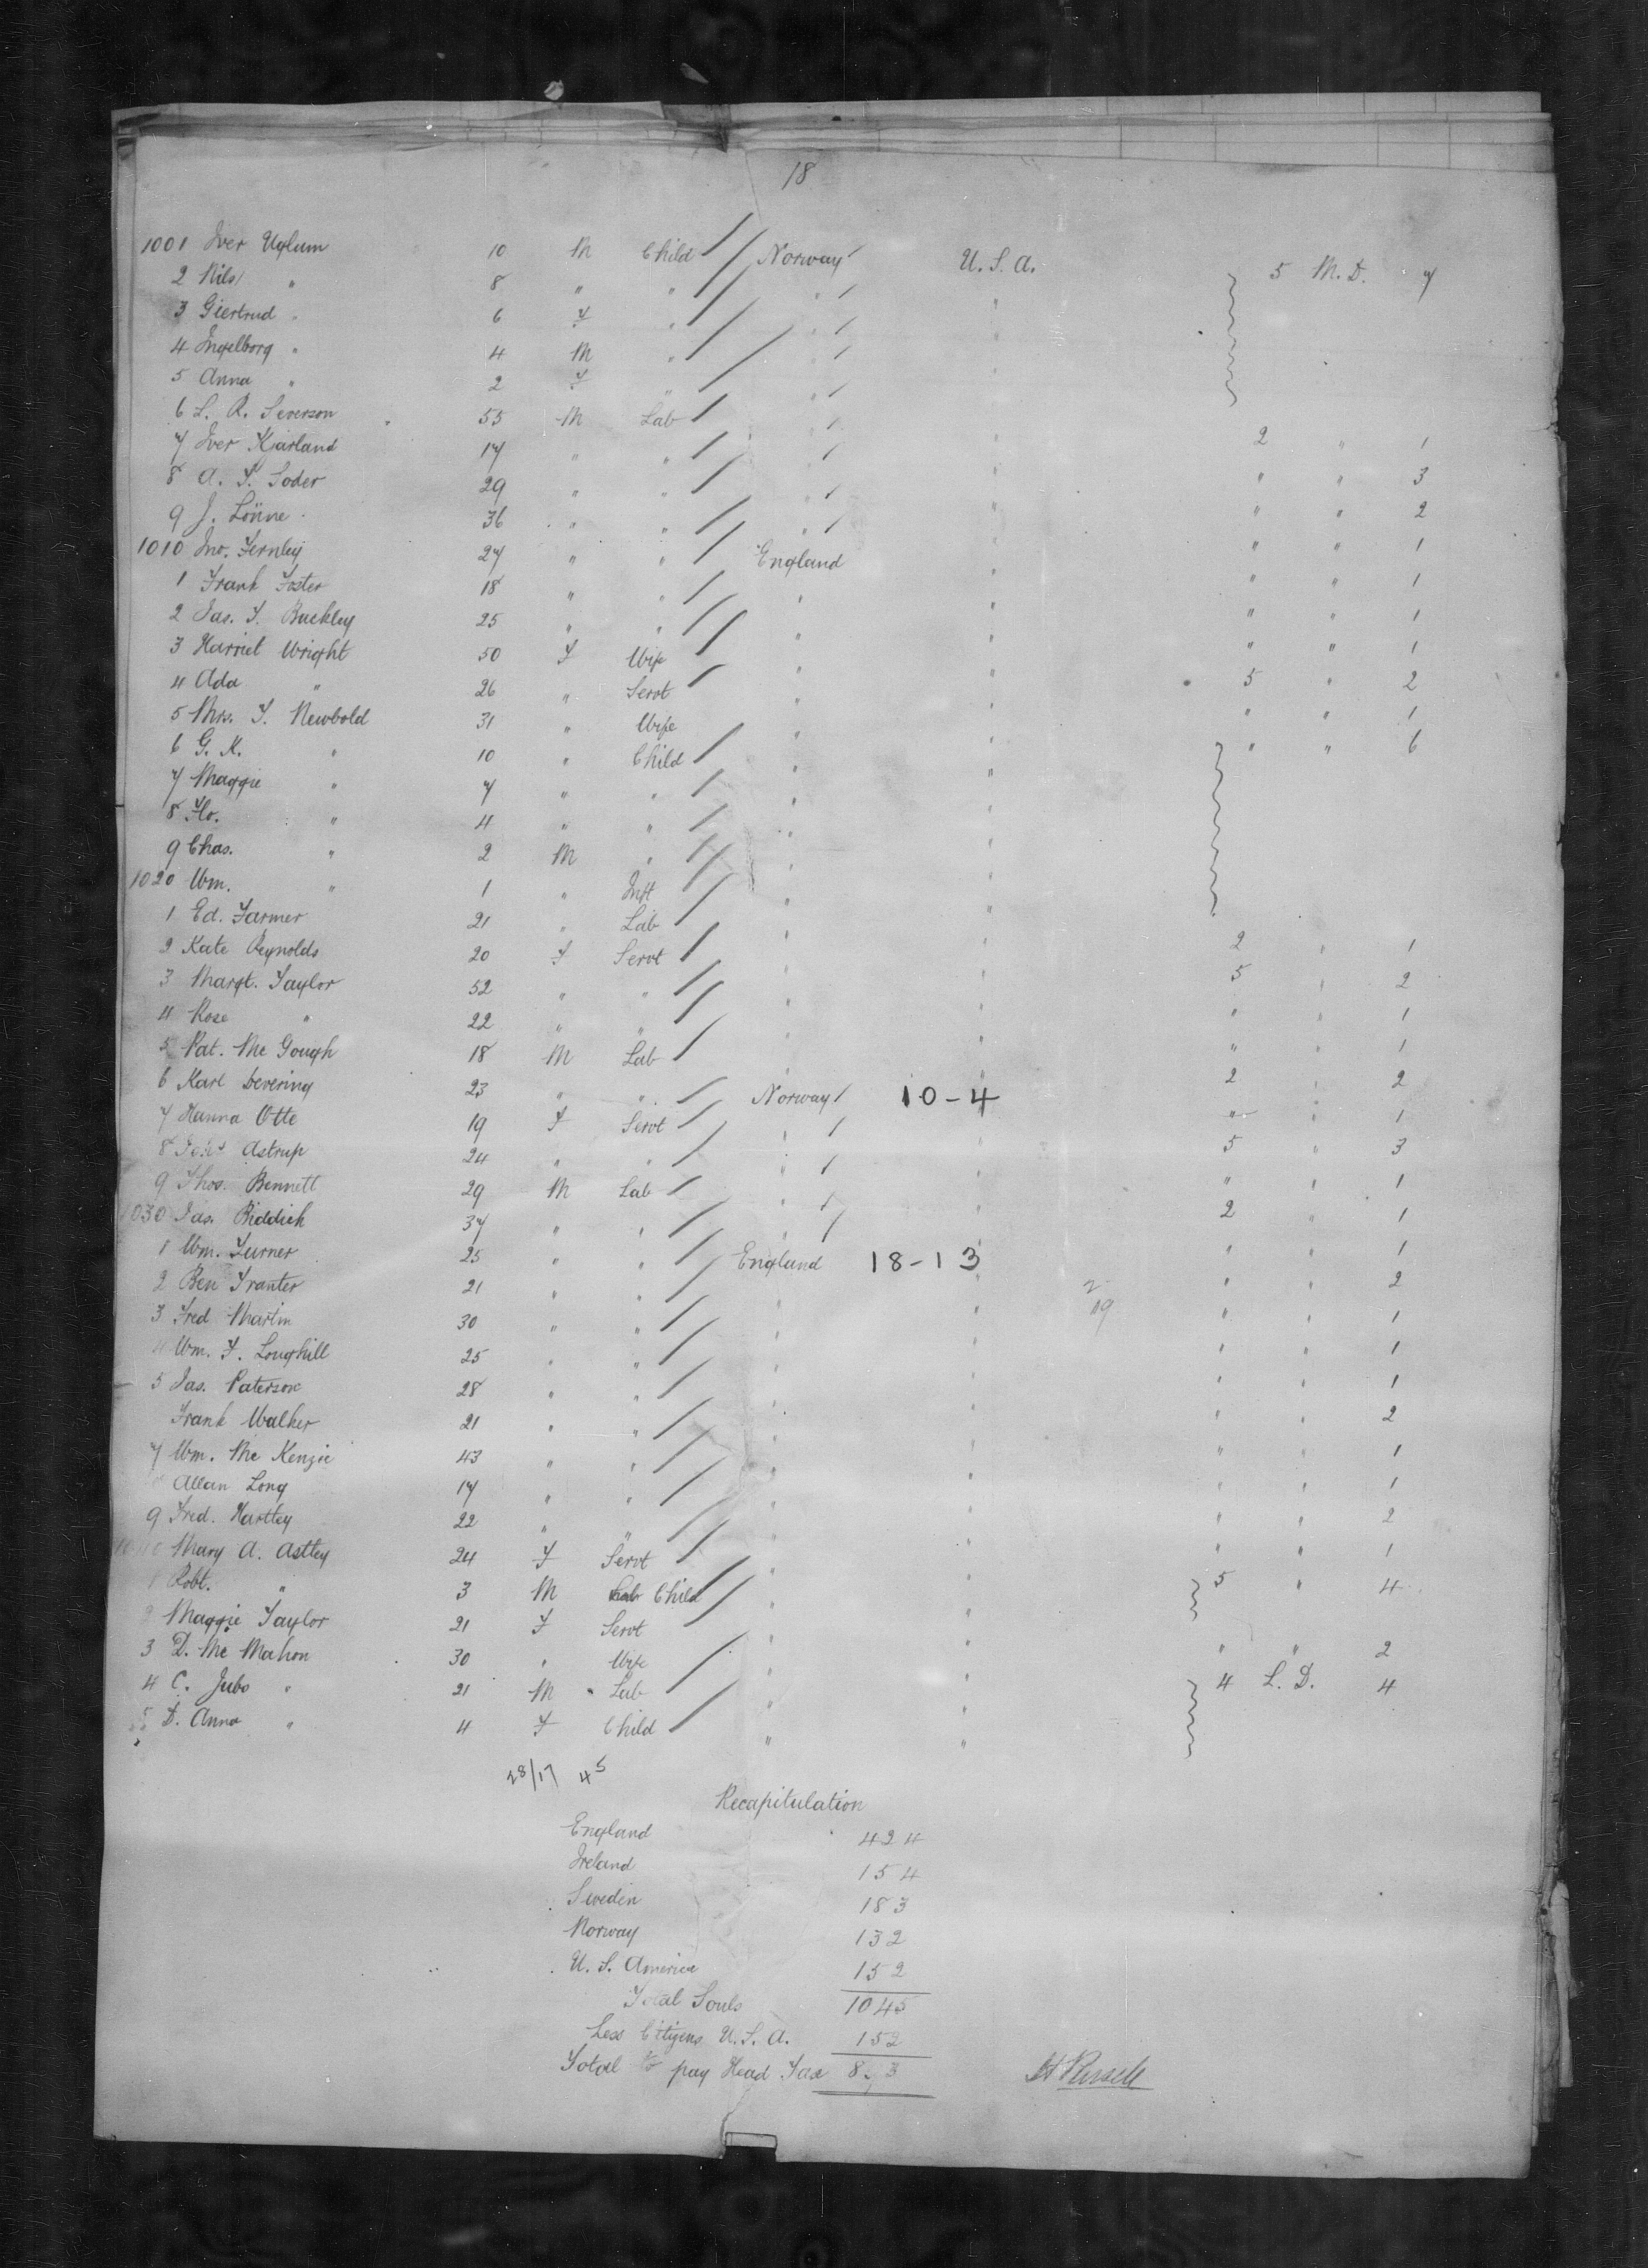 18
1001 Iver Uglum 10 M Child Norway U.S.A. 5 M.D. 7
2 Nils " 8 " " " "
3 Giertrud " 6 F " " "
4 Ingelborg " 4 M " " "
5 Anna " 2 F " " "
6 L. R. Severson 55 M Lab " " 2 " 1
7 Iver Kjarland 17 " " " " " " 3
8 A. S. Soder 29 " " " " " " 2
9 J. Lönne 36 " " " " " " 1
1010 Jno. Fernley 27 " " England " " " 1
1 Frank Foster 18 " " " " " " 1
2 Jas. F. Buckley 25 " " " " " " 1
3 Harriet Wright 50 F Wife " " 5 " 2
4 Ada " 26 " Servt " " " " 1
5 Mrs. F. Newbold 31 " Wife " " " " 6
6 G. K. " 10 " Child " "
7 Maggie " 7 " " " "
8 Flo. " 4 " " " "
9 Chas. " 2 M " " "
1020 Wm. " 1 " Inft " "
1 Ed. Farmer 21 " Lab " " 2 " 1
2 Kate Reynolds 20 F Servt " " 5 " 2
3 Margt. Taylor 52 " " " " " " 1
4 Rose " 22 " " " " " " 1
5 Pat. Mc Gough 18 M Lab " " 2 " 2
6 Karl Devering 23 " " Norway 10-4 " " 1
7 Hanna Otte 19 F Servt " " 5 " 3
8 Astrup 24 " " " " " " 1
9 Thos. Bennett 29 M Lab " " 2 " 1
1030 Jas. Riddich 37 " " " " " " 1
1 Wm. Turner 25 " " England 18-13 " " " 2
2 Ben Tranter 21 " " " " " " 1
3 Fred Martin 30 " " " " " " 1
4 Wm. F. Loughill 25 " " " " " " 1
5 Jas. Paterson 28 " " " " " " 2
Frank Walker 21 " " " " " " 1
7 Wm. Mc Kenzie 43 " " " " " " 1
Allan Long 17 " " " " " " 2
9 Fred. Hartley 22 " " " " " " 1
1040 Mary A. Astley 24 F Servt " " 5 " 4
1 Robt. " 3 M Child " "
2 Maggie Taylor 21 F Servt " " " " 2
3 D. Mc Mahon 30 " Wife " " 4 L.D. 4
4 C. Jubo " 21 M Lab " "
5 D. Anna " 4 F Child " "
28/17 45
Recapitulation
England 424
Ireland 154
Sweden 183
Norway 132
U. S. America 152
Total Souls 1045
Less Citizens U.S.A. 152
Total to pay Head Tax 8 3